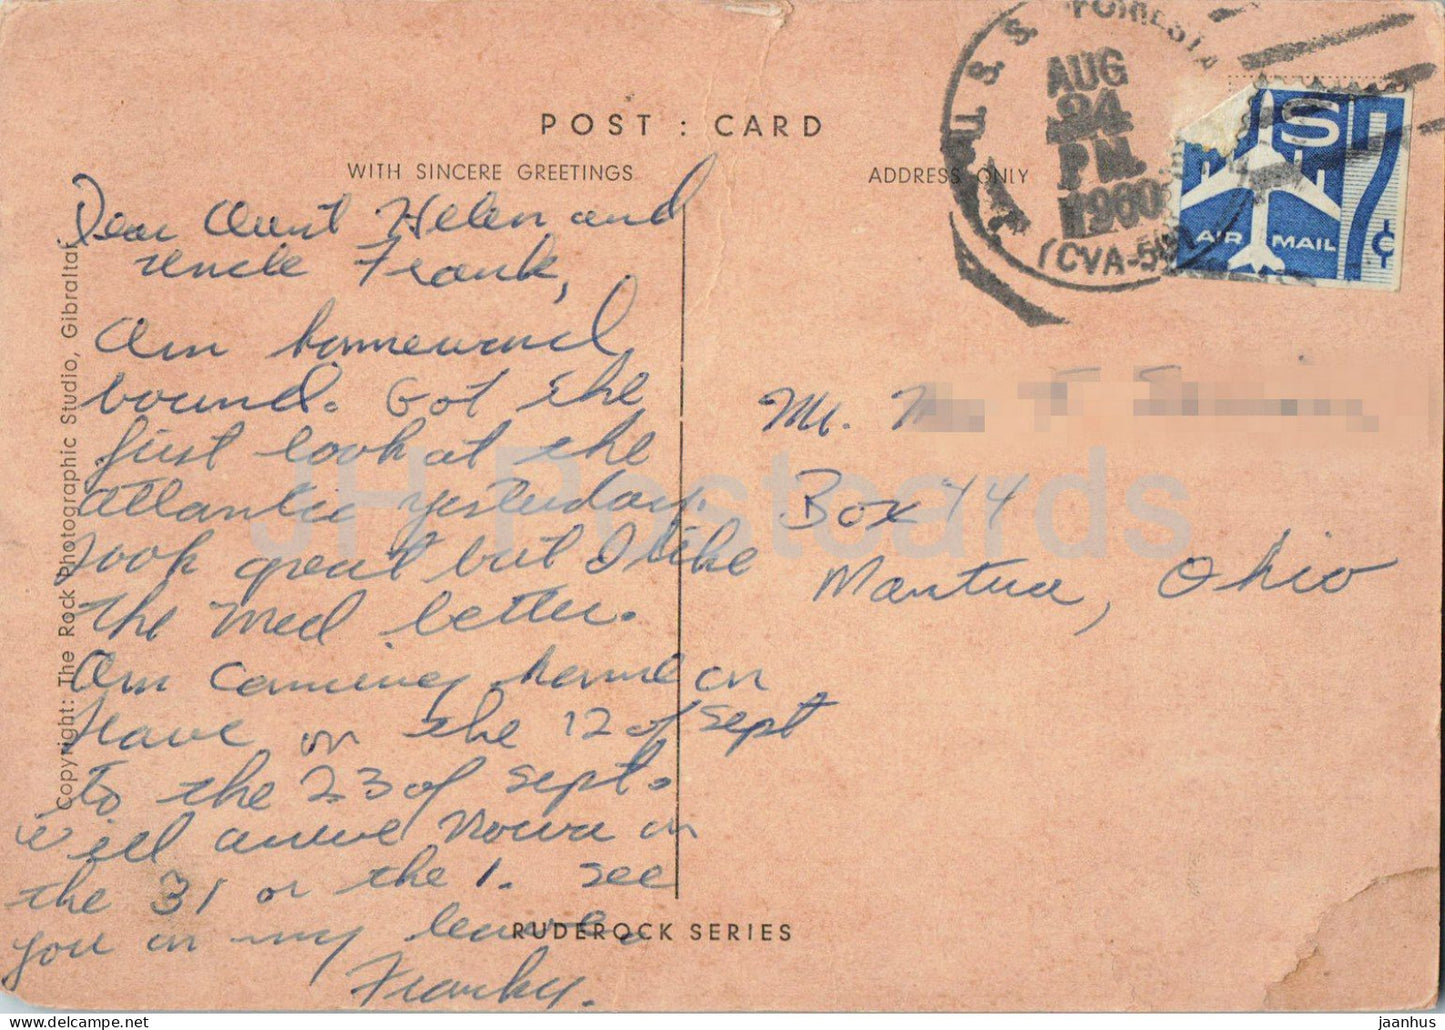 POST : CARD
WITH SINCERE GREETINGS
ADDRESS ONLY
U.S.S. FORRESTA
AUG
24
PM
1960
(CVA-59)
US
7¢
AIR MAIL
Dear Aunt Helen and
uncle Frank,
Am homeward
bound. Got the
first look at the
atlantic yesterday.
Look great but I like
the Med better.
Am coming home on
leave on the 12 of Sept
to the 23 of Sept.
will arrive in
the 31 or the 1. See
you on my leave.
Franky.
Mr.
Box 44
Mantua, Ohio
Copyright: The Rock Photographic Studio, Gibraltar
RUDEROCK SERIES
JH Postcards
HIPPOSTCARD.COM jaanhus